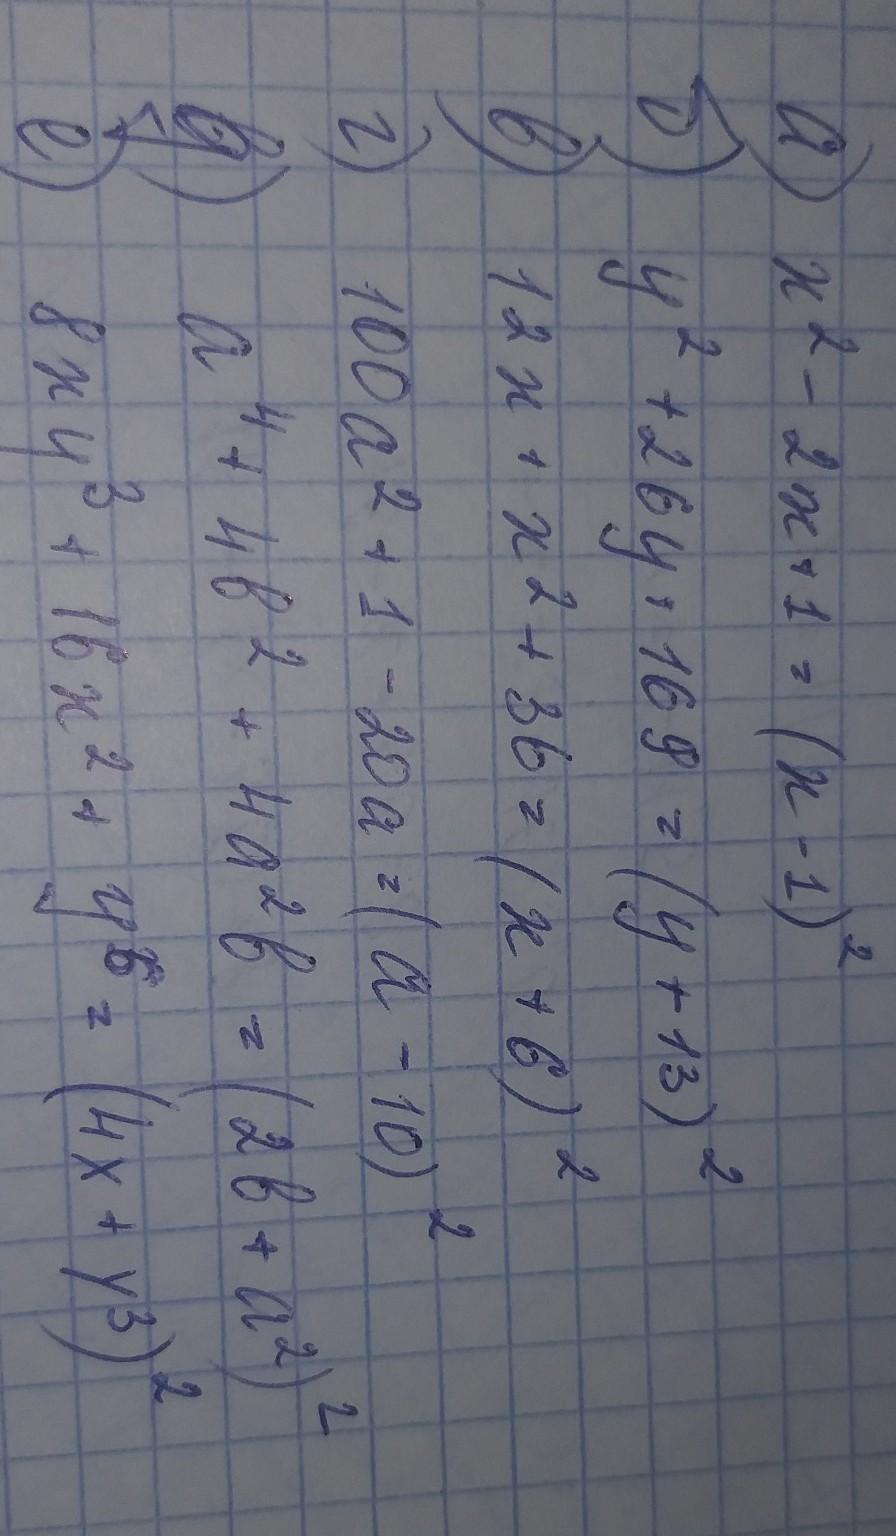 а) x² - 2x + 1 = (x - 1)²
б) y² + 26y + 169 = (y + 13)²
в) 12x + x² + 36 = (x + 6)²
г) 100a² + 1 - 20a = (a - 10)²
д) a⁴ + 4b² + 4a²b = (2b + a²)²
е) 8xy³ + 16x² + y⁶ = (4x + y³)²